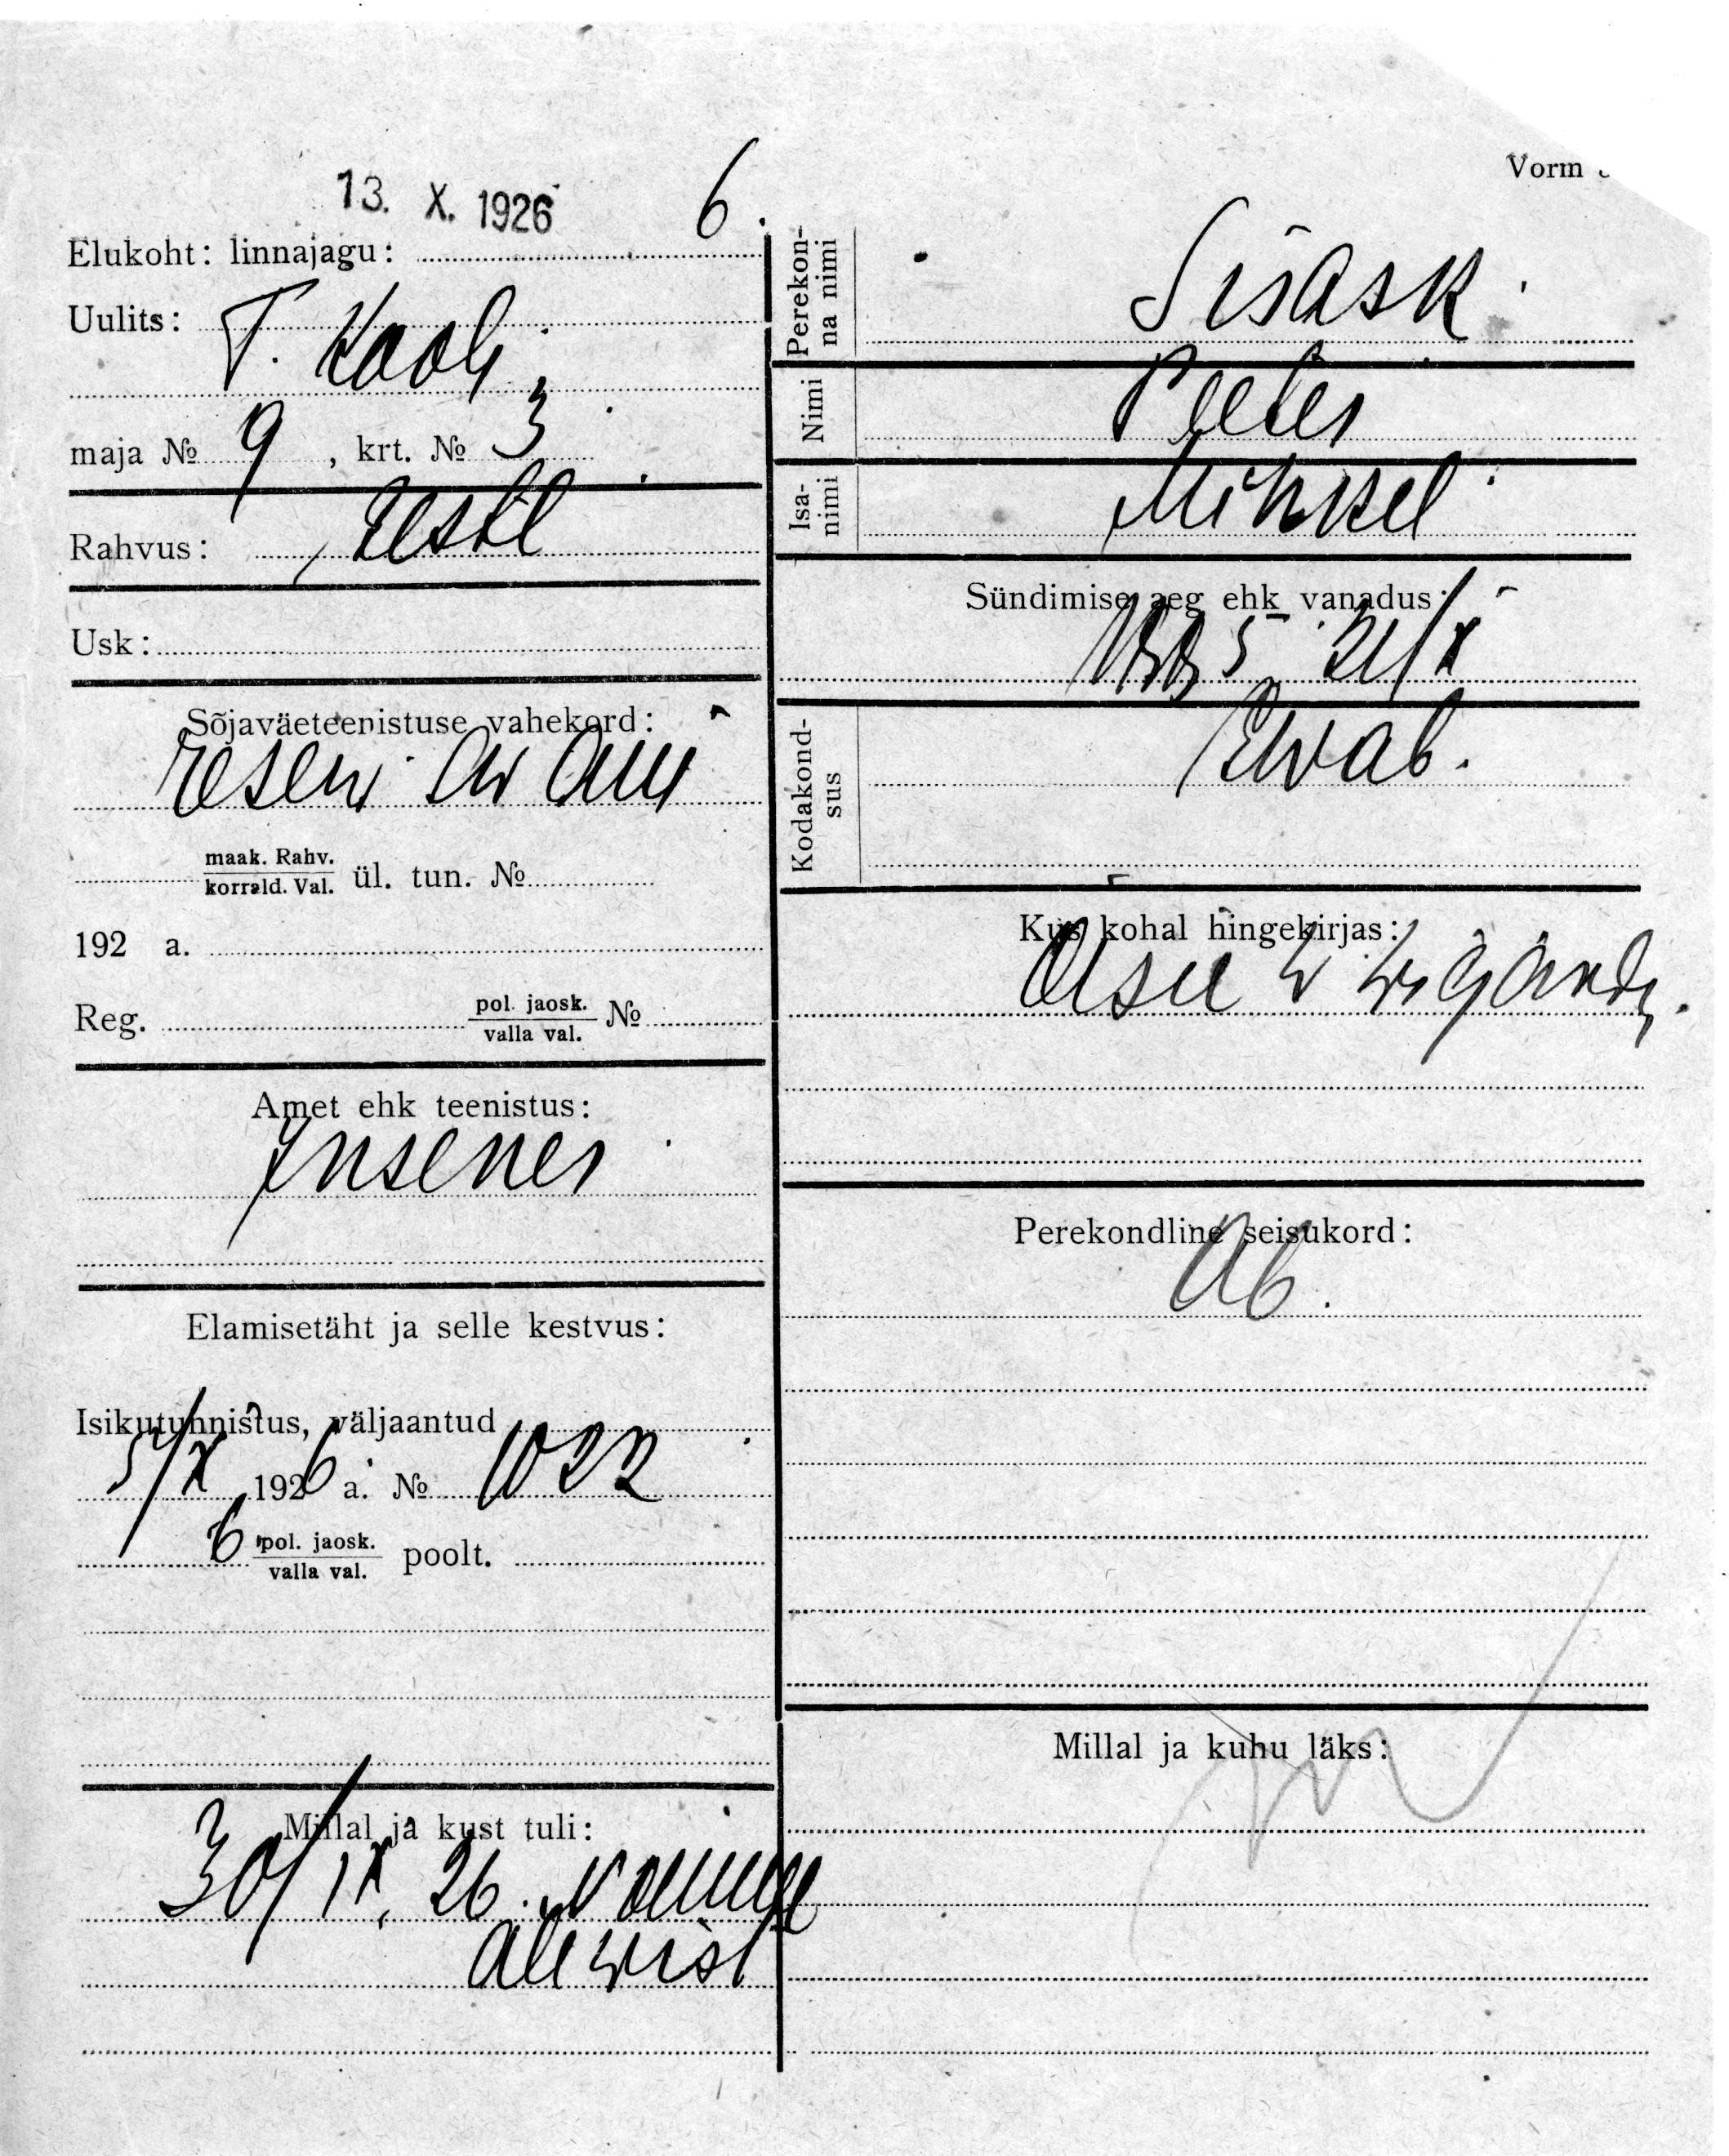 Vorm
13. X. 1926
6.
Elukoht: linnajagu:
Uulits: T. Kooli
maja № 9, krt. № 3
Rahvus: Eesti
Usk:
Sõjaväeteenistuse vahekord:
reserv
maak. Rahv.
korrald. Val. ül. tun. №
192 a.
Reg. pol. jaosk.
valla val. №
Amet ehk teenistus:
Insener
Elamisetäht ja selle kestvus:
Isikutunnistus, väljaantud
5/X 1926 a. № 1022
6 pol. jaosk.
valla val. poolt.
Millal ja kust tuli:
30/IX. 26. Nõmme
alevist
Perekon-
na nimi
Sisask
Nimi
Peeter
Isa-
nimi
Mihkel
Sündimise aeg ehk vanadus:
21/X
Kodakond-
sus
E wab.
Kus kohal hingekirjas:
Perekondline seisukord:
Ab.
Millal ja kuhu läks: